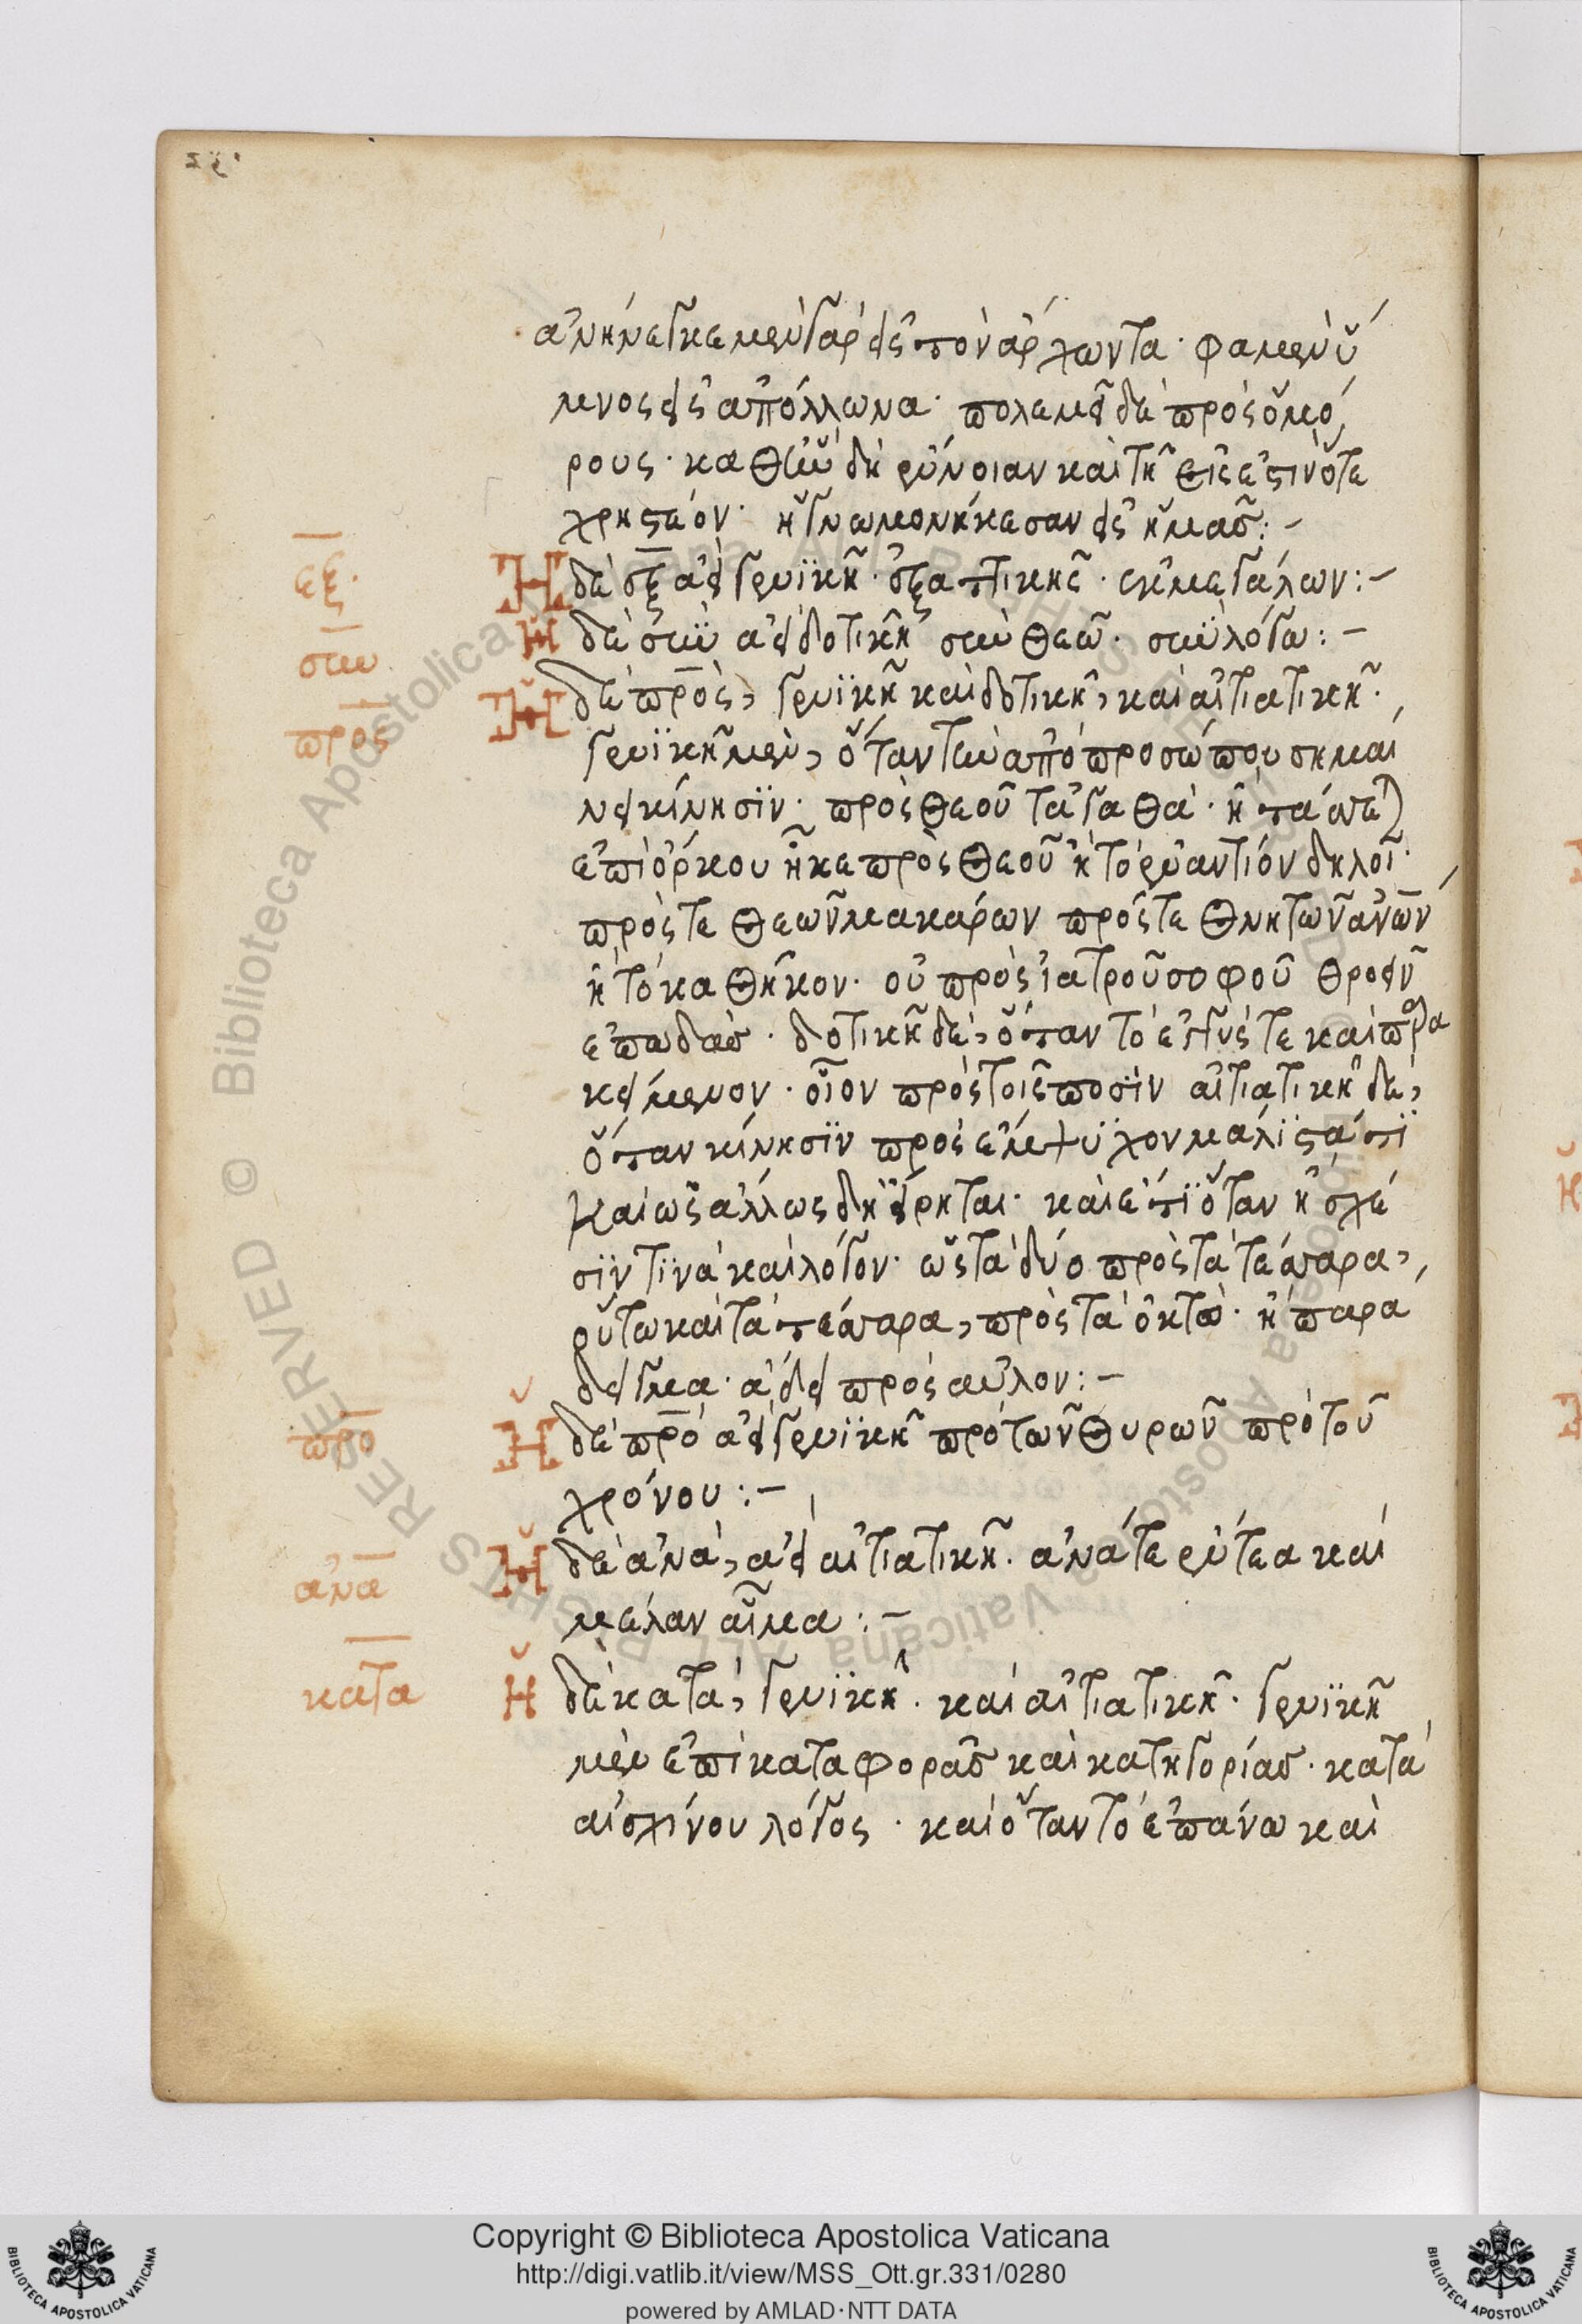 ἀνήνεγκε μὲν γὰρ εἰς τὸν ἄρχωντα· φαμὲν ὕ
μνος εἰς ἀπόλλωνα· πολεμεῖ δὲ πρὸς ὁμό
ρους· καθ' οὗ δὴ εὔνοιαν καὶ τῇ εἰς ἐστὶν ὅτε
χρηστέον· ἠγνωμονήκασαν εἰς ἡμᾶς:-
εξ
Ἡ δὲ ἐξ ἀεὶ γενϊκῆ· ἐξ ἀττικῆς· ἐκ μεγάλων:-
συν
Ἡ δὲ σὺν ἀεὶ δοτικῆ σὺν θεῶ· σὺν λόγω:-
προς
Ἡ δὲ πρὸς, γενϊκῆ καὶ δοτικῆ, καὶ αἰτιατικῆ·
γενϊκῆ μὲν, ὅταν τὴν ἀπὸ προσώπου σημαί
νει κίνησϊν· πρὸς θεοῦ τἀγαθά· ἢ
ἐπιόρκου ἧκε πρὸς θεοῦ ἢ τὸ ἐναντίον δηλοῖ·
πρός τε θεῶν μακάρων πρός τε θνητῶν ἀνῶν
ἢ τὸ καθῆκον· οὐ πρὸς ἰατροῦ σοφοῦ θροεῖν
ἐπωδὰς· δοτικῆ δὲ, ὅταν τὸ ἐγγύς τε καὶ παρα
κείμενον· οἷον πρὸς τοῖς ποσὶν αἰτιατικῆ δὲ,
ὅταν κίνησϊν πρὸς ἔμψυχον μάλιστα ἐπὶ
καὶ ὡς ἄλλως δὴ εἴρηται· καὶ ἔτι ὅταν ἢ σχέ
σϊν τϊνὰ καὶ λόγον· ὡς τὰ δύο πρὸς τὰ τέσσαρα,
οὕτω καὶ τὰ τέσσαρα, πρὸς τὰ ὀκτὼ· ἢ παρά
δειγμα· ἄδει πρὸς αὐλον:-
προ
Ἡ δὲ πρὸ ἀεὶ γενϊκῆ πρὸ τῶν θυρῶν πρὸ τοῦ
χρόνου:-
ἀνα
Ἡ δὲ ἀνὰ, ἀεὶ αἰτιατικῆ· ἀνά τε ἔντεα καὶ
μέλαν αἷμα:-
κατα
Ἡ δὲ κατὰ, γενϊκῆ· καὶ αἰτιατικῆ· γενϊκῆ
μὲν ἐπὶ καταφορᾶς καὶ κατηγορίας· κατὰ
αἰσχίνου λόγος· καὶ ὅταν τὸ ἐπάνω καὶ
Biblioteca Apostolica Vaticana ALL RIGHTS RESERVED ©
Copyright © Biblioteca Apostolica Vaticana
http://digi.vatlib.it/view/MSS_Ott.gr.331/0280
powered by AMLAD·NTT DATA
BIBLIOTECA APOSTOLICA VATICANA
BIBLIOTECA APOSTOLICA VATICANA